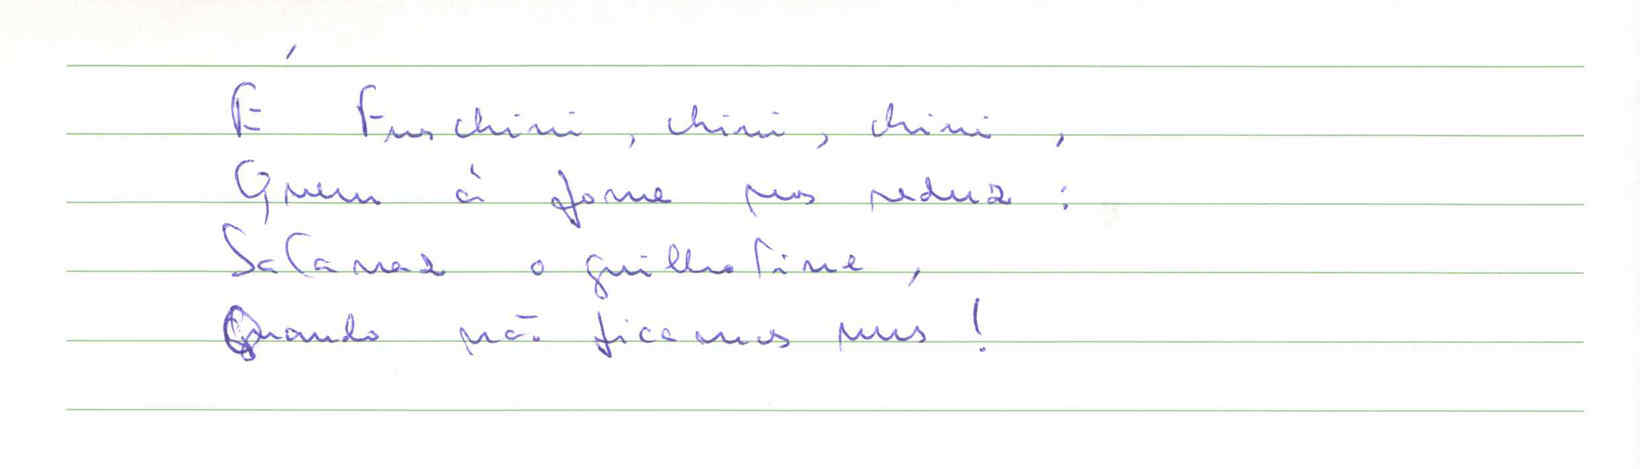 É Fuschini, chini, chini,
Quem à fome nos reduz:
Satanaz o guilhotine,
Quando não ficamos nus!